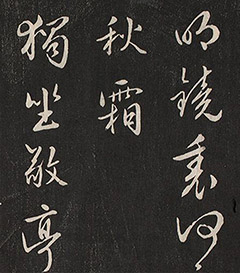 明鏡裏何
秋霜
獨坐敬亭